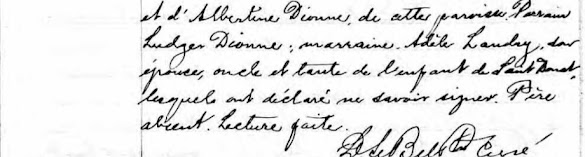 et d'Albertine Dionne, de cette paroisse. Parrain
Ludger Dionne; marraine Adèle Landry, son
épouse, oncle et tante de l'enfant de Saint Donat,
lesquels ont déclaré ne savoir signer. Père
absent. Lecture faite.
Ptre Curé